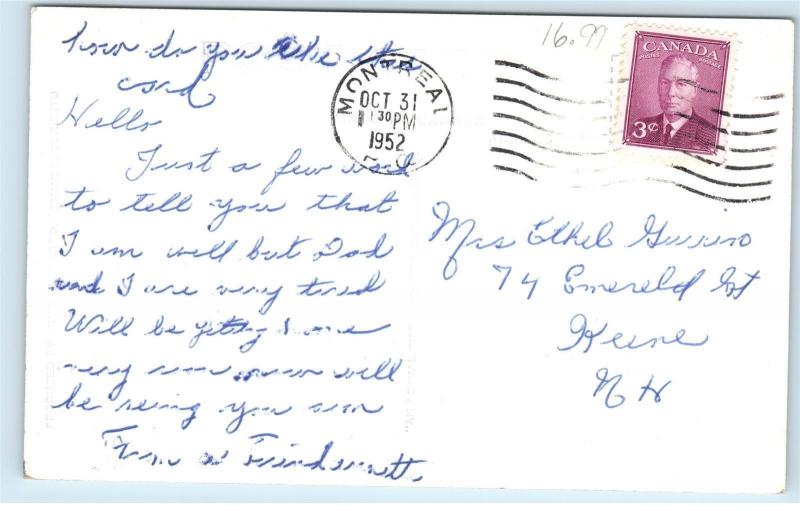 how do you like this
card
Hello
Just a few word
to tell you that
I am well but Dad
and I are very tired
Will be getting home
very soon now will
be seing you son
From a Friend
16.99
MONTREAL
OCT 31
30 PM
1952
CANADA
POSTES POSTAGE
3¢
Mrs Ethel
74 Emerald St
Keene
N H